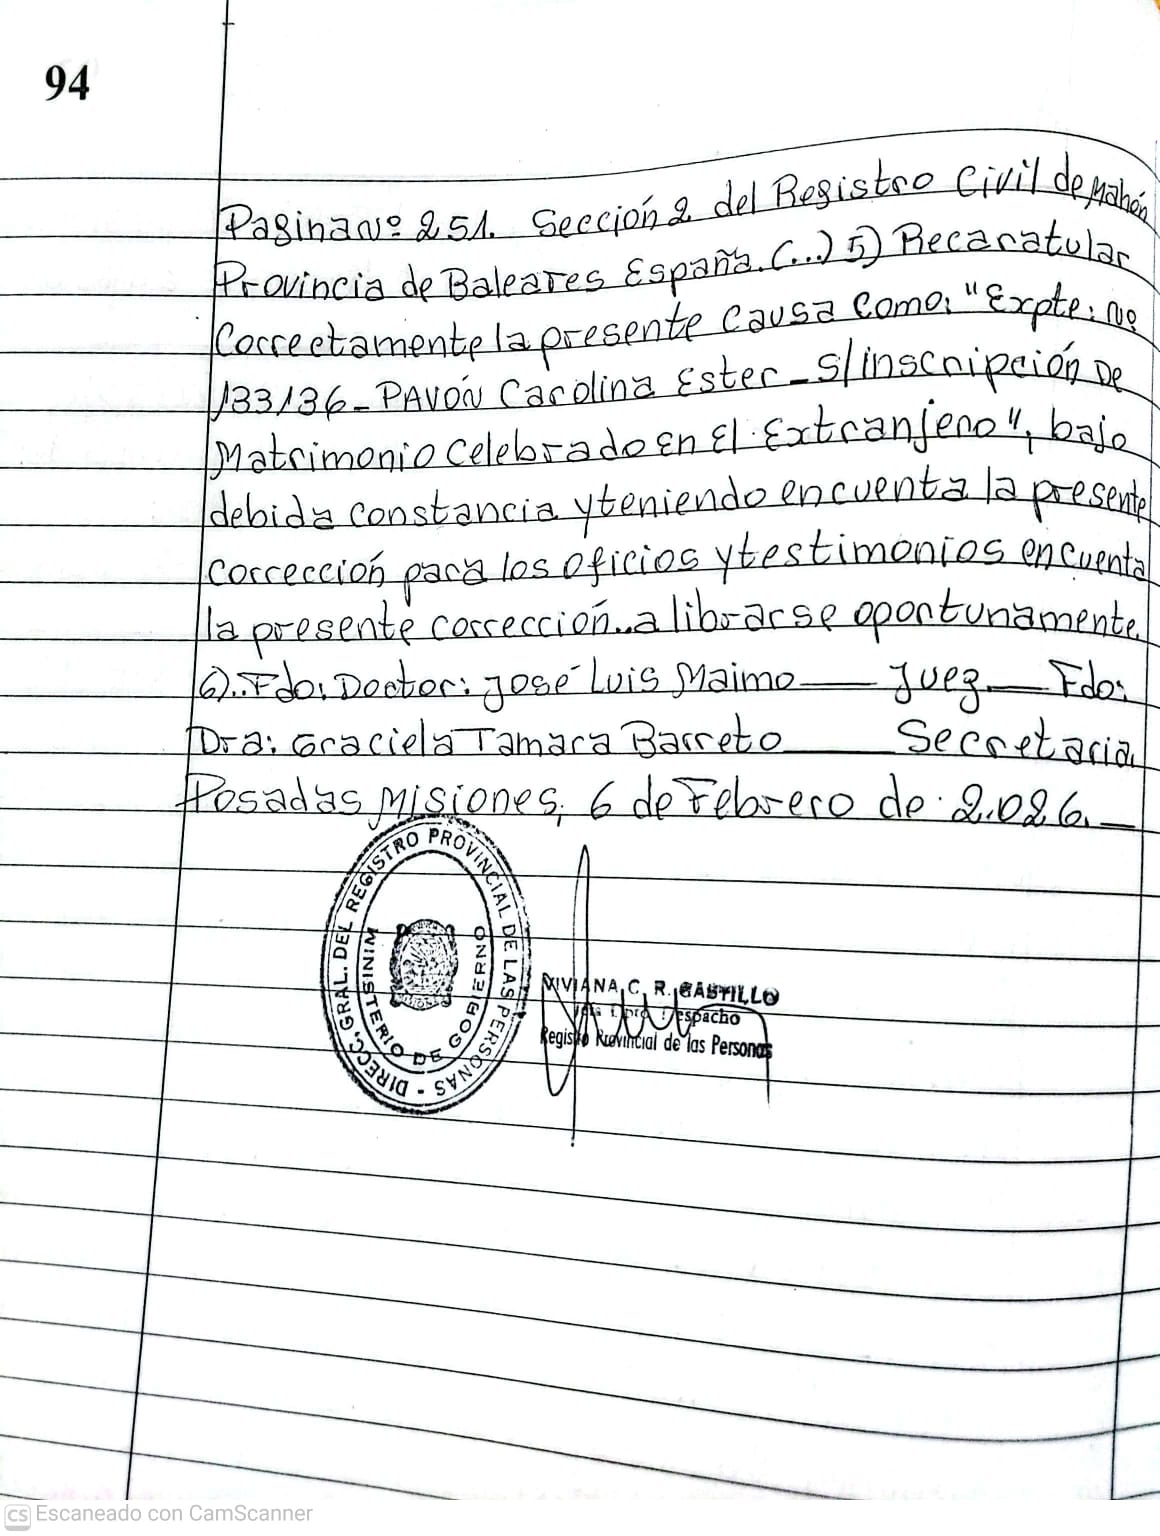 94
Pagina Nº 251. Sección 2 del Registro Civil de Mahón
Provincia de Baleares España. (...) 5) Recaratular
Correctamente la presente causa como: "Expte: Nº
133136 - PAVÓN Carolina Ester - S/inscripción De
Matrimonio Celebrado En El Extranjero", bajo
debida constancia y teniendo en cuenta la presente
corrección para los oficios y testimonios en cuenta
la presente corrección.. a librarse oportunamente.
6).. Fdo: Doctor: José Luis Maimo — Juez — Fdo:
Dra: Graciela Tamara Barreto — Secretaria.
Posadas Misiones, 6 de Febrero de 2.026. —
DIRECC. GRAL. DEL REGISTRO PROVINCIAL DE LAS PERSONAS -
MINISTERIO DE GOBIERNO
VIVIANA C. R. CASTILLO
Despacho
Registro Provincial de las Personas
CS Escaneado con CamScanner